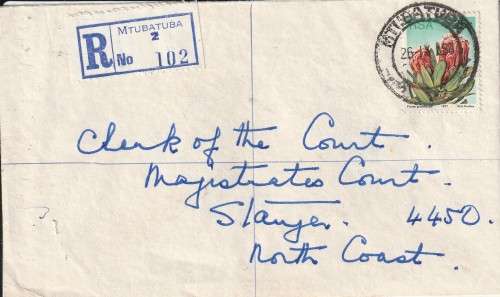 MTUBATUBA
2
R No 102
MTUBATUBA
RSA
26 IX
Clerk of the Court.
Magistrates Court.
Stanger. 4450.
North Coast.